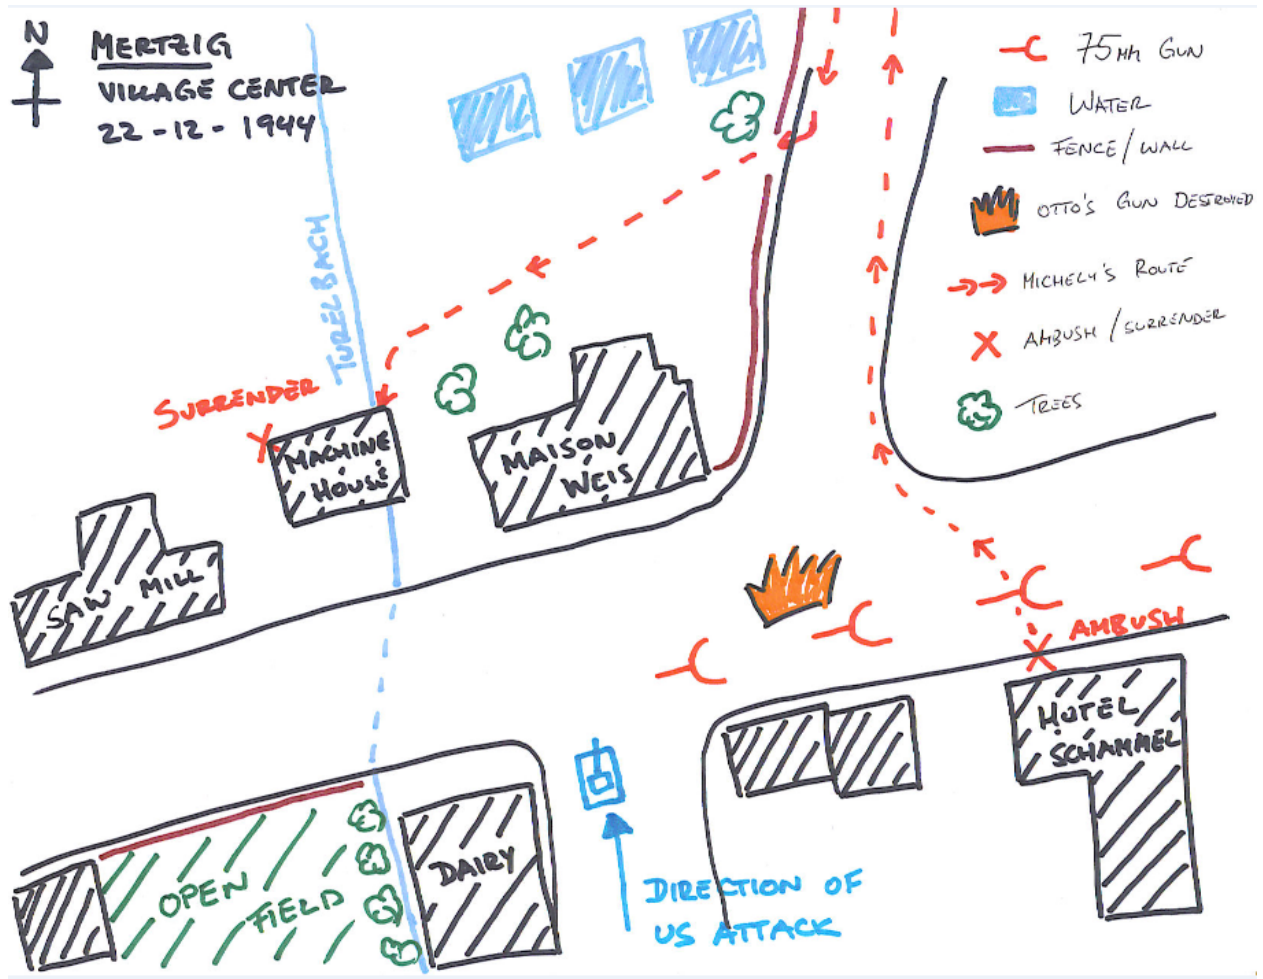 N
MERTZIG
VILLAGE CENTER
22-12-1944
TURELBACH
75MM GUN
WATER
FENCE/WALL
OTTO'S GUN DESTROYED
MICHELY'S ROUTE
AMBUSH/SURRENDER
TREES
SURRENDER
MACHINE
HOUSE
MAISON
WEIS
SAW MILL
AMBUSH
HOTEL
SCHAMMEL
DAIRY
OPEN
FIELD
DIRECTION OF
US ATTACK